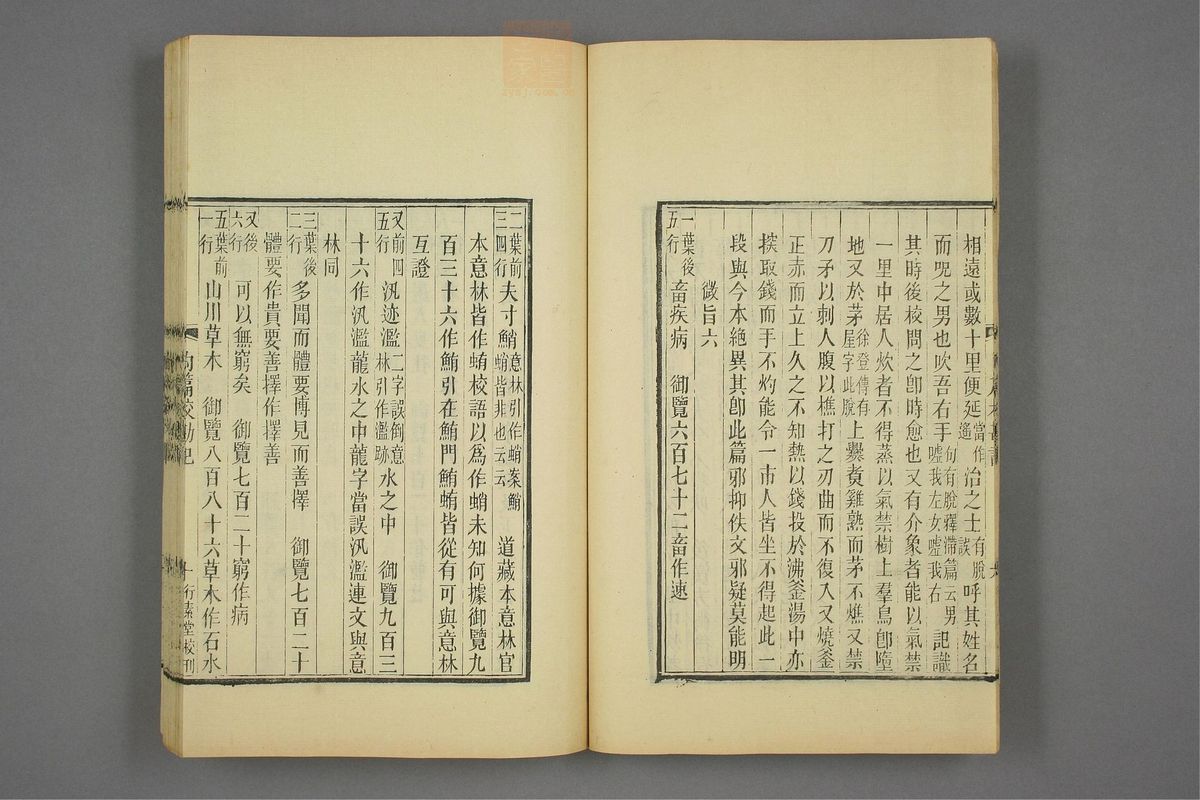 相遠或數十里便延當作遙治之士有脫誤呼其姓名
而咒之男也吹吾右手句有脫釋滯篇云男噓我左女噓我右記識
其時後校問之卽時愈也又有介象者能以氣禁
一里中居人炊者不得蒸以氣禁樹上羣鳥卽墮
地又於茅徐登傳有屋字此脫上爨煑雞熟而茅不燋又禁
刀矛以刺人腹以樵打之刃曲而不復入又燒釜
正赤而立上久之不知熱以錢投於沸釜湯中亦
探取錢而手不灼能令一市人皆坐不得起此一
段與今本絕異其卽此篇邪抑佚文邪疑莫能明
微旨六
一葉後五行 畜疾病 御覽六百七十二畜作速
二葉前三四行 夫寸鮹意林引作蛸案鮹蛸皆非也云云 道藏本意林官
本意林皆作蛕校語以爲作蛸未知何據御覽九
百三十六作鮪引在鮪門鮪蛕皆從有可與意林
互證
又前四五行 汎迹濫二字誤倒意林引作濫跡水之中 御覽九百三
十六作汎濫龍水之中龍字當誤汎濫連文與意
林同
三葉後二行 多聞而體要博見而善擇 御覽七百二十
體要作貴要善擇作擇善
又後六行 可以無窮矣 御覽七百二十窮作病
五葉前一行 山川草木 御覽八百八十六草木作石水
內篇校勘記
十一行素堂校刊